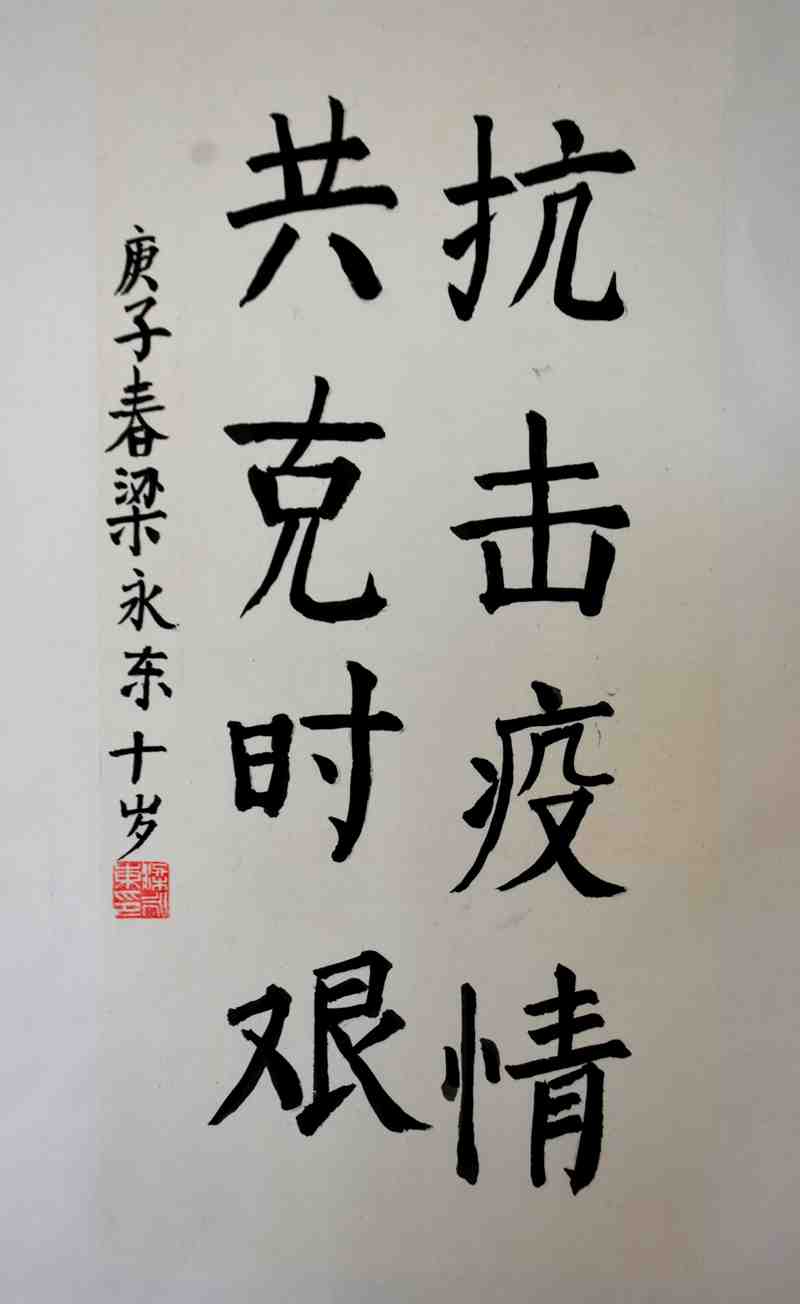 抗击疫情
共克时艰
庚子春梁永东十岁
梁永東印